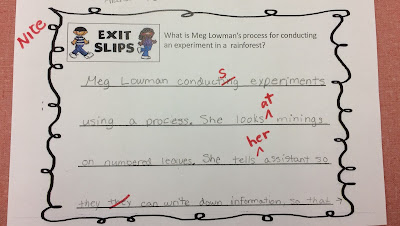 Nice
EXIT
SLIPS
What is Meg Lowman's process for conducting
an experiment in a rainforest?
s
Meg Lowman conducting experiments
at
using a process. She looks ^ minings
her
on numbered leaves. She tells ^ assistant so
they they can write down information so that →